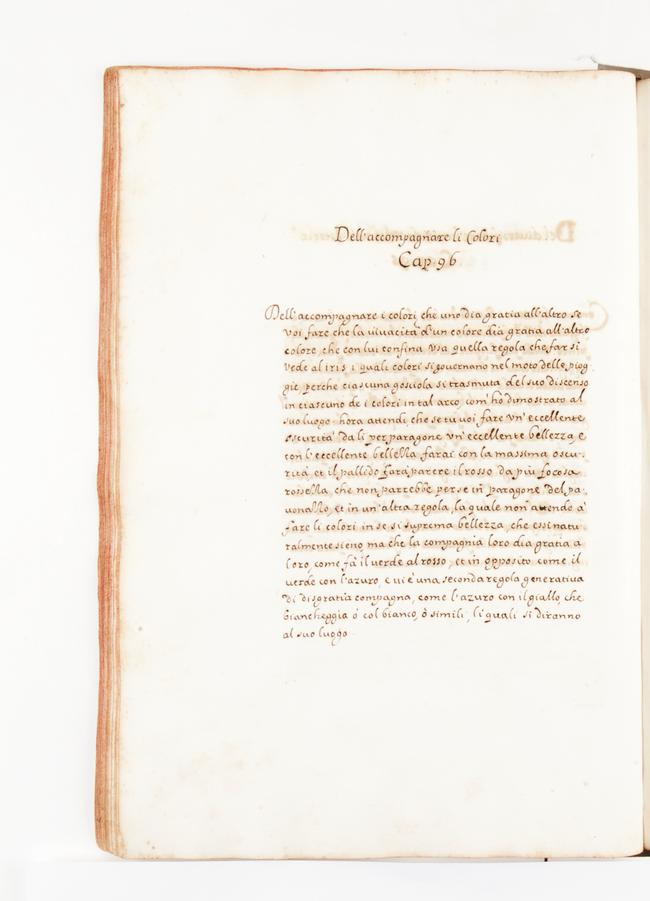 Dell'accompagnare li Colori
Cap 96
Dell'accompagnare i colori, che uno dia gratia all'altro se
voi fare che la vivacità d'un colore dia gratia all'altro
colore, che con lui confina. Vsa quella regola che far si
vede al iris i quali colori si governano nel moto delle piog
gie, perche ciascuna gociola si trasmuta del suo discenso
in ciascuno de i colori in tal arco, com' hò dimostrato al
suo luogo. hora attendi, che se tu voi fare vn' eccellente
oscurità dali per paragone vn' eccellente bellezza, e
con l'eccellente bellezza farai con la massima oscu-
rità, et il pallido farà parere il rosso da più focosa
rossezza, che non parrebbe per se in paragone del pa-
uonazzo, et in un'altra regola, la quale non attende à
fare li colori in se si suprema bellezza, che essi natu
ralmente sieno, ma che la compagnia loro dia gratia a
loro, come fà il verde al rosso, et in opposito come il
verde con l'azuro, e ui è una seconda regola generativa
di disgratia compagna, come l'azuro con il giallo, che
biancheggia ò col bianco, ò simili, li quali si diranno
al suo luogo